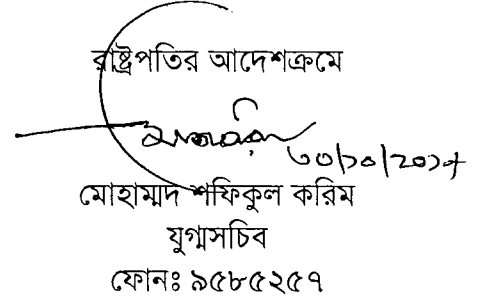 রাষ্ট্রপতির আদেশক্রমে
৩০/১০/২০১৭
মোহাম্মদ শফিকুল করিম
যুগ্মসচিব
ফোনঃ ৯৫৮৫২৫৭